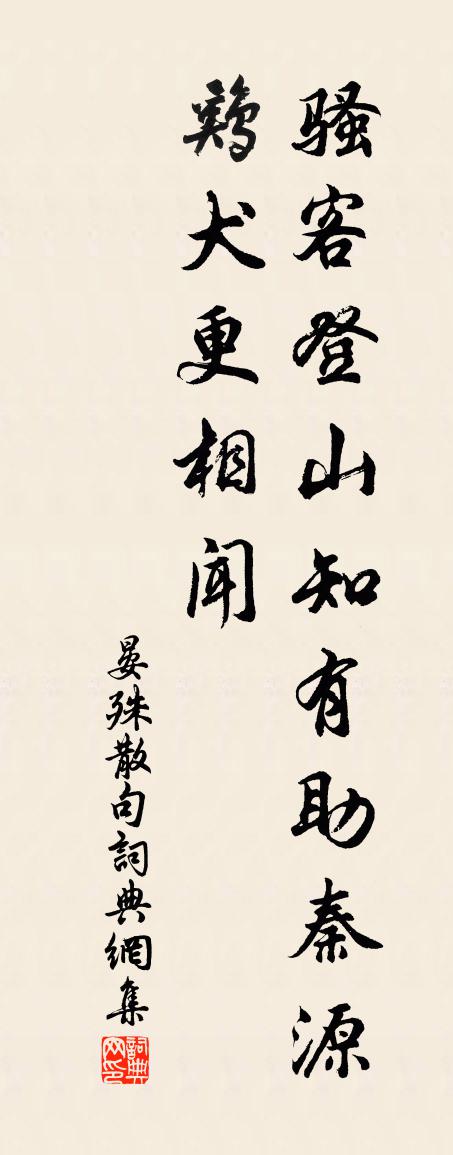 騷客登山知有助秦源
鷄犬更相聞
晏殊散句詞典網集
詞典网印